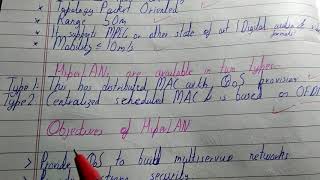 Topology Packet Oriented
Range 50m
It supports MPEG or other state of art (Digital audio &
Mobility ≤ 10m/s
HiperLANs are available in two types-
Type 1- This has distributed MAC with QoS provision
Type 2- Centralized scheduled MAC & is based on OFDM
Objectives of HiperLAN
> Provide QoS to build multiservice networks
strong security